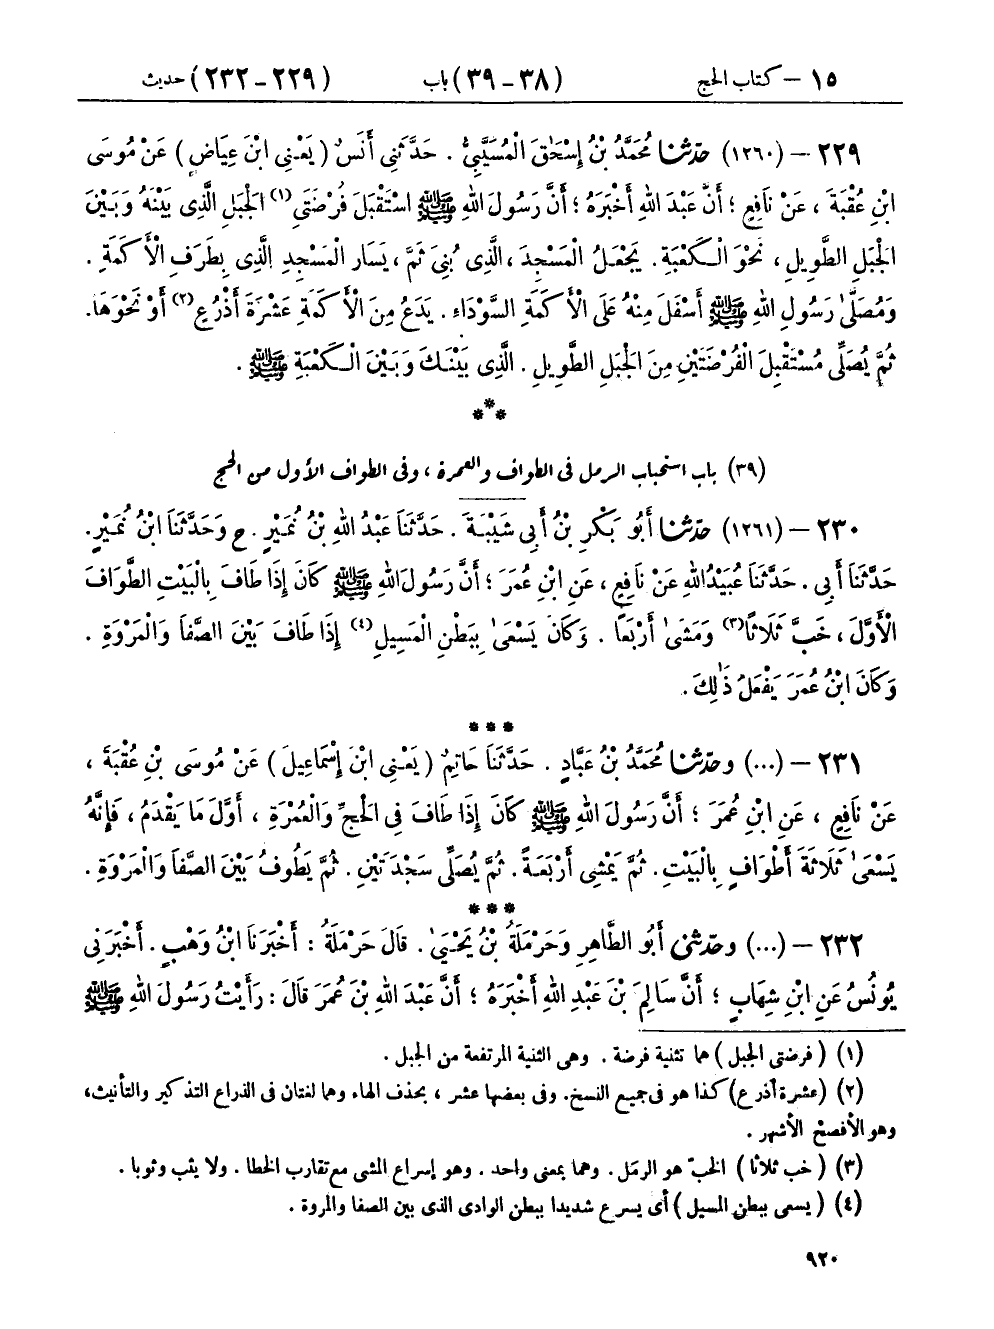 ١٥ – كتاب الحج (٣٨ – ٣٩) باب (٢٢٩ – ٢٣٢) حديث
٢٢٩ – (١٢٦٠) حدّثنا مُحَمَّدُ بْنُ إِسْحَاقَ الْمُسَيَّبِيُّ . حَدَّثَنِي أَنَسٌ ( يَعْنِي ابْنَ عِيَاضٍ ) عَنْ مُوسَى
ابْنِ عُقْبَةَ ، عَنْ نَافِعٍ ؛ أَنَّ عَبْدَ اللهِ أَخْبَرَهُ ؛ أَنَّ رَسُولَ اللهِ ﷺ اسْتَقْبَلَ فُرْضَتَيِ(١) الْجَبَلِ الَّذِي بَيْنَهُ وَبَيْنَ
الْجَبَلِ الطَّوِيلِ ، نَحْوَ الْكَعْبَةِ . يَجْعَلُ الْمَسْجِدَ ، الَّذِي بُنِيَ ثَمَّ ، يَسَارَ الْمَسْجِدِ الَّذِي بِطَرَفِ الْأَكَمَةِ .
وَمُصَلَّى رَسُولِ اللهِ ﷺ أَسْفَلَ مِنْهُ عَلَى الْأَكَمَةِ السَّوْدَاءِ . يَدَعُ مِنَ الْأَكَمَةِ عَشَرَةَ أَذْرُعٍ(٢) أَوْ نَحْوَهَا .
ثُمَّ يُصَلِّي مُسْتَقْبِلَ الْفُرْضَتَيْنِ مِنَ الْجَبَلِ الطَّوِيلِ . الَّذِي بَيْنَكَ وَبَيْنَ الْكَعْبَةِ ﷺ .
***
(٣٩) باب استحباب الرمل فى الطواف والعمرة ، وفى الطواف الأول من الحج
٢٣٠ – (١٢٦١) حدّثنا أَبُو بَكْرِ بْنُ أَبِي شَيْبَةَ . حَدَّثَنَا عَبْدُ اللهِ بْنُ نُمَيْرٍ . ح وَحَدَّثَنَا ابْنُ نُمَيْرٍ .
حَدَّثَنَا أَبِي . حَدَّثَنَا عُبَيْدُ اللهِ عَنْ نَافِعٍ ، عَنِ ابْنِ عُمَرَ ؛ أَنَّ رَسُولَ اللهِ ﷺ كَانَ إِذَا طَافَ بِالْبَيْتِ الطَّوَافَ
الْأَوَّلَ ، خَبَّ ثَلَاثًا(٣) وَمَشَى أَرْبَعًا . وَكَانَ يَسْعَى بِبَطْنِ الْمَسِيلِ(٤) إِذَا طَافَ بَيْنَ الصَّفَا وَالْمَرْوَةِ .
وَكَانَ ابْنُ عُمَرَ يَفْعَلُ ذَٰلِكَ .
***
٢٣١ – (...) وحدّثنا مُحَمَّدُ بْنُ عَبَّادٍ . حَدَّثَنَا حَاتِمٌ ( يَعْنِي ابْنَ إِسْمَاعِيلَ ) عَنْ مُوسَى بْنِ عُقْبَةَ ،
عَنْ نَافِعٍ ، عَنِ ابْنِ عُمَرَ ؛ أَنَّ رَسُولَ اللهِ ﷺ كَانَ إِذَا طَافَ فِي الْحَجِّ وَالْعُمْرَةِ ، أَوَّلَ مَا يَقْدَمُ ، فَإِنَّهُ
يَسْعَى ثَلَاثَةَ أَطْوَافٍ بِالْبَيْتِ . ثُمَّ يَمْشِي أَرْبَعَةً . ثُمَّ يُصَلِّي سَجْدَتَيْنِ . ثُمَّ يَطُوفُ بَيْنَ الصَّفَا وَالْمَرْوَةِ .
***
٢٣٢ – (...) وحدّثنى أَبُو الطَّاهِرِ وَحَرْمَلَةُ بْنُ يَحْيَى . قَالَ حَرْمَلَةُ : أَخْبَرَنَا ابْنُ وَهْبٍ . أَخْبَرَنِي
يُونُسُ عَنِ ابْنِ شِهَابٍ ؛ أَنَّ سَالِمَ بْنَ عَبْدِ اللهِ أَخْبَرَهُ ؛ أَنَّ عَبْدَ اللهِ بْنَ عُمَرَ قَالَ : رَأَيْتُ رَسُولَ اللهِ ﷺ
(١) ( فرضتى الجبل ) هما تثنية فرضة . وهى الثنية المرتفعة من الجبل .
(٢) ( عشرة أذرع ) كذا هو فى جميع النسخ . وفى بعضها عشر ، بحذف الهاء وهما لغتان فى الذراع التذكير والتأنيث ،
وهو الأفصح الأشهر .
(٣) ( خب ثلاثا ) الخبّ هو الرمَل . وهما بمعنى واحد . وهو إسراع المشى مع تقارب الخطا . ولا يثب وثوبا .
(٤) ( يسعى ببطن المسيل ) أى يسرع شديدا ببطن الوادى الذى بين الصفا والمروة .
٩٢٠